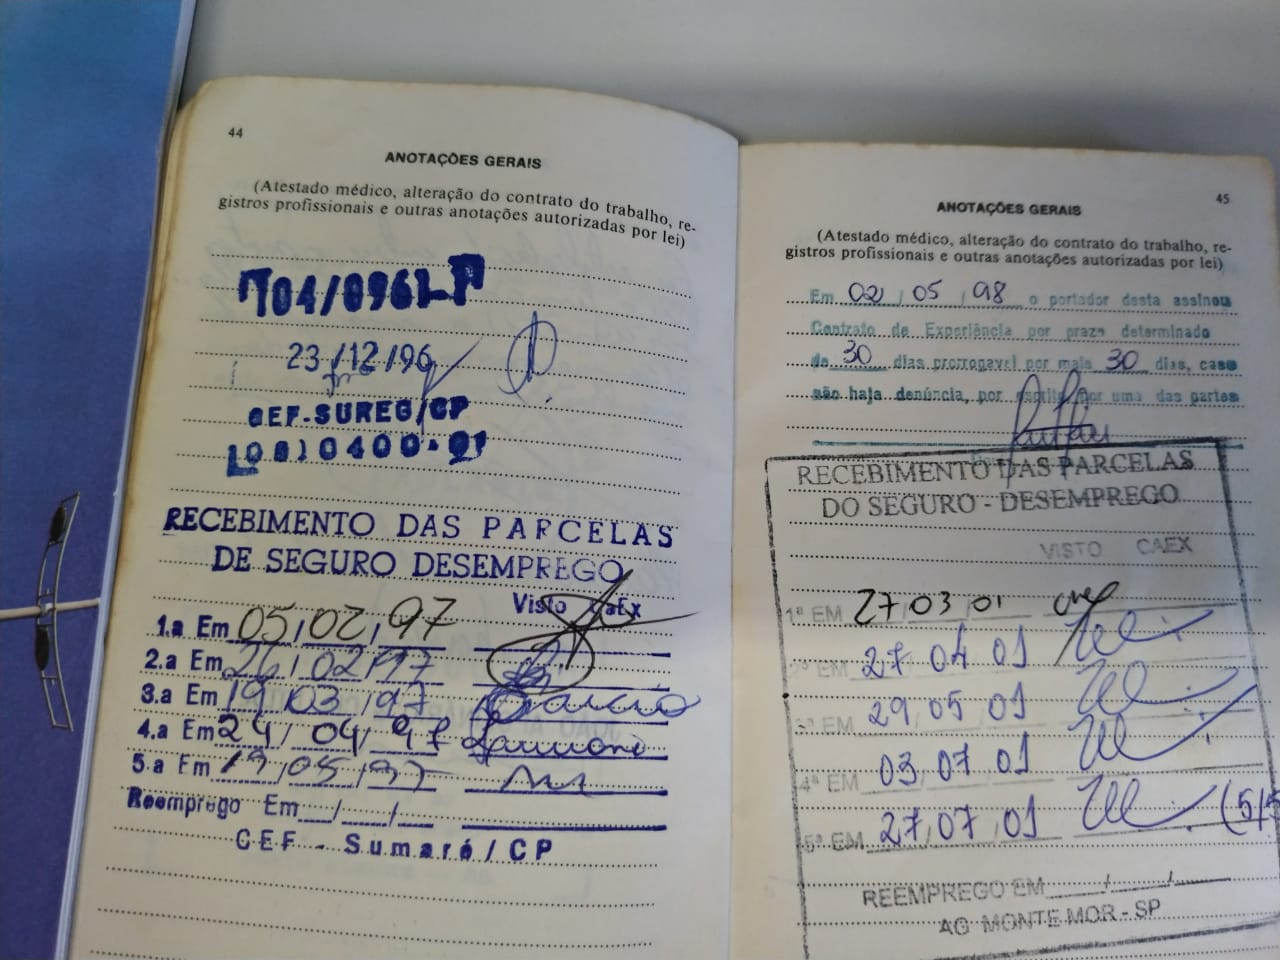 44
ANOTAÇÕES GERAIS
(Atestado médico, alteração do contrato do trabalho, re-
gistros profissionais e outras anotações autorizadas por lei)
23/12/96
CEF-SUREG/CP
RECEBIMENTO DAS PARCELAS
DE SEGURO DESEMPREGO
Visto CaEx
1.a Em 05/02/97
2.a Em 26/02/97
3.a Em 19/03/97
4.a Em 24/04/97
5.a Em 19/05/97
Reemprego Em / /
CEF - Sumaré/CP
45
ANOTAÇÕES GERAIS
(Atestado médico, alteração do contrato do trabalho, re-
gistros profissionais e outras anotações autorizadas por lei)
Em 02/05/98 o portador desta assinou
Contrato de Experiência por prazo determinado
de 30 dias prorrogavel por mais 30 dias, caso
não haja denúncia, por escrito por uma das partes
RECEBIMENTO DAS PARCELAS
DO SEGURO - DESEMPREGO
VISTO CAEX
1ª EM 27/03/01
2ª EM 27 04 01
3ª EM 29/05/01
4ª EM 03/07/01
5ª EM 27/07/01 (5/5
REEMPREGO EM / /
AG MONTE MOR - SP